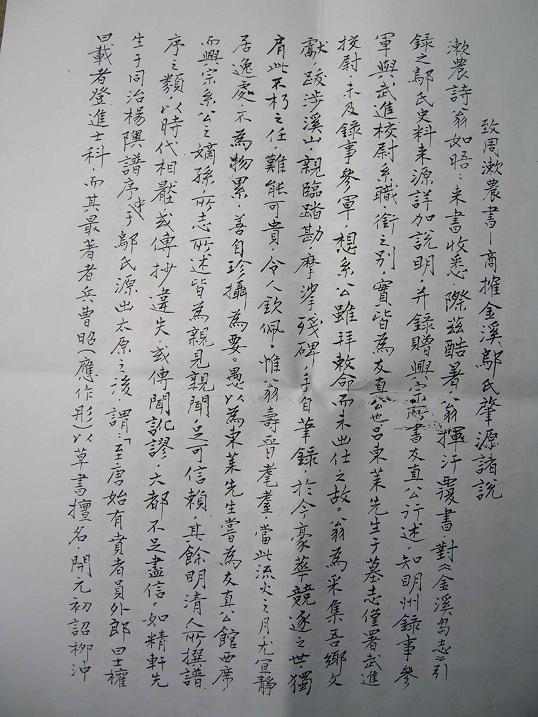 致周漱農書—商榷金溪鄔氏肇源諸說
漱農詩翁如晤：来書收悉，際兹酷暑，翁揮汗覆書，對《金溪鄔志》引
錄之鄔氏史料来源，詳加說明，并錄贈興宗所書友真公行述，知明州錄事參
軍與武進校尉系職銜之別，實皆為友真公也。呂東莱先生于墓志僅署武進
校尉，未及錄事參軍，想系公雖拜敕命而未出仕之故。翁為采集吾鄉文
獻，跋涉溪山，親臨踏勘，摩挲殘碑，手自筆錄，於今豪華競逐之世，獨
肩此不朽之任，難能可貴，令人欽佩。惟翁壽晋耄耋，當此流火之月，尤宜靜
居逸處，不為物累，善自珍攝為要。愚以為東莱先生嘗為友真公館西席，
而興宗系公之嫡孫，所志所述皆為親見親聞，足可信賴，其餘明清人所撰譜
序之類，以時代相壓，或傳抄違失，或傳聞訛謬，大都不足盡信。如精軒先
生于同治楊陳譜序，述于鄔氏源出太原之後，謂：「至唐始有賁者員外郎曰士權
曰載者登進士科，而其最著者兵曹昭（應作彤）以草書擅名，開元初詔柳沖